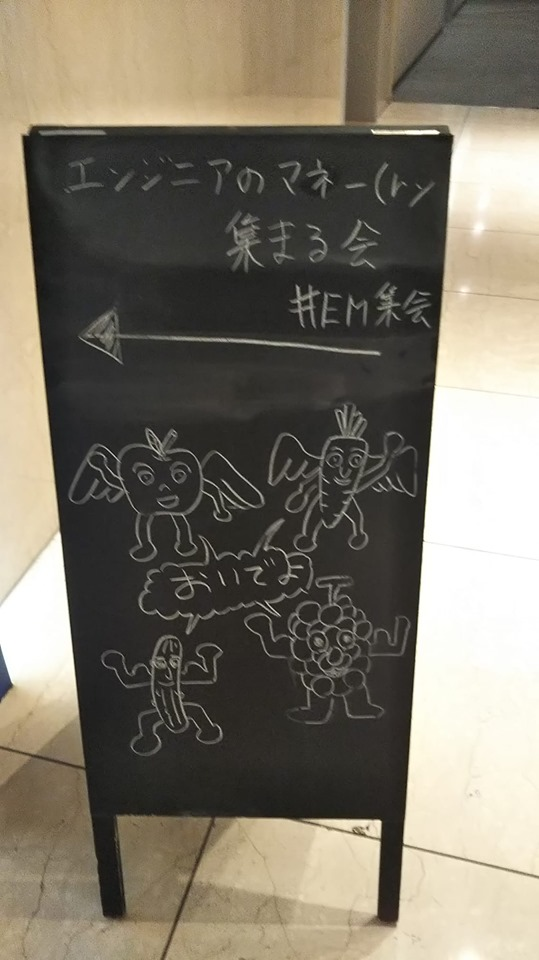 エンジニアのマネー(ry
集まる会
#EM集会
おいでよ